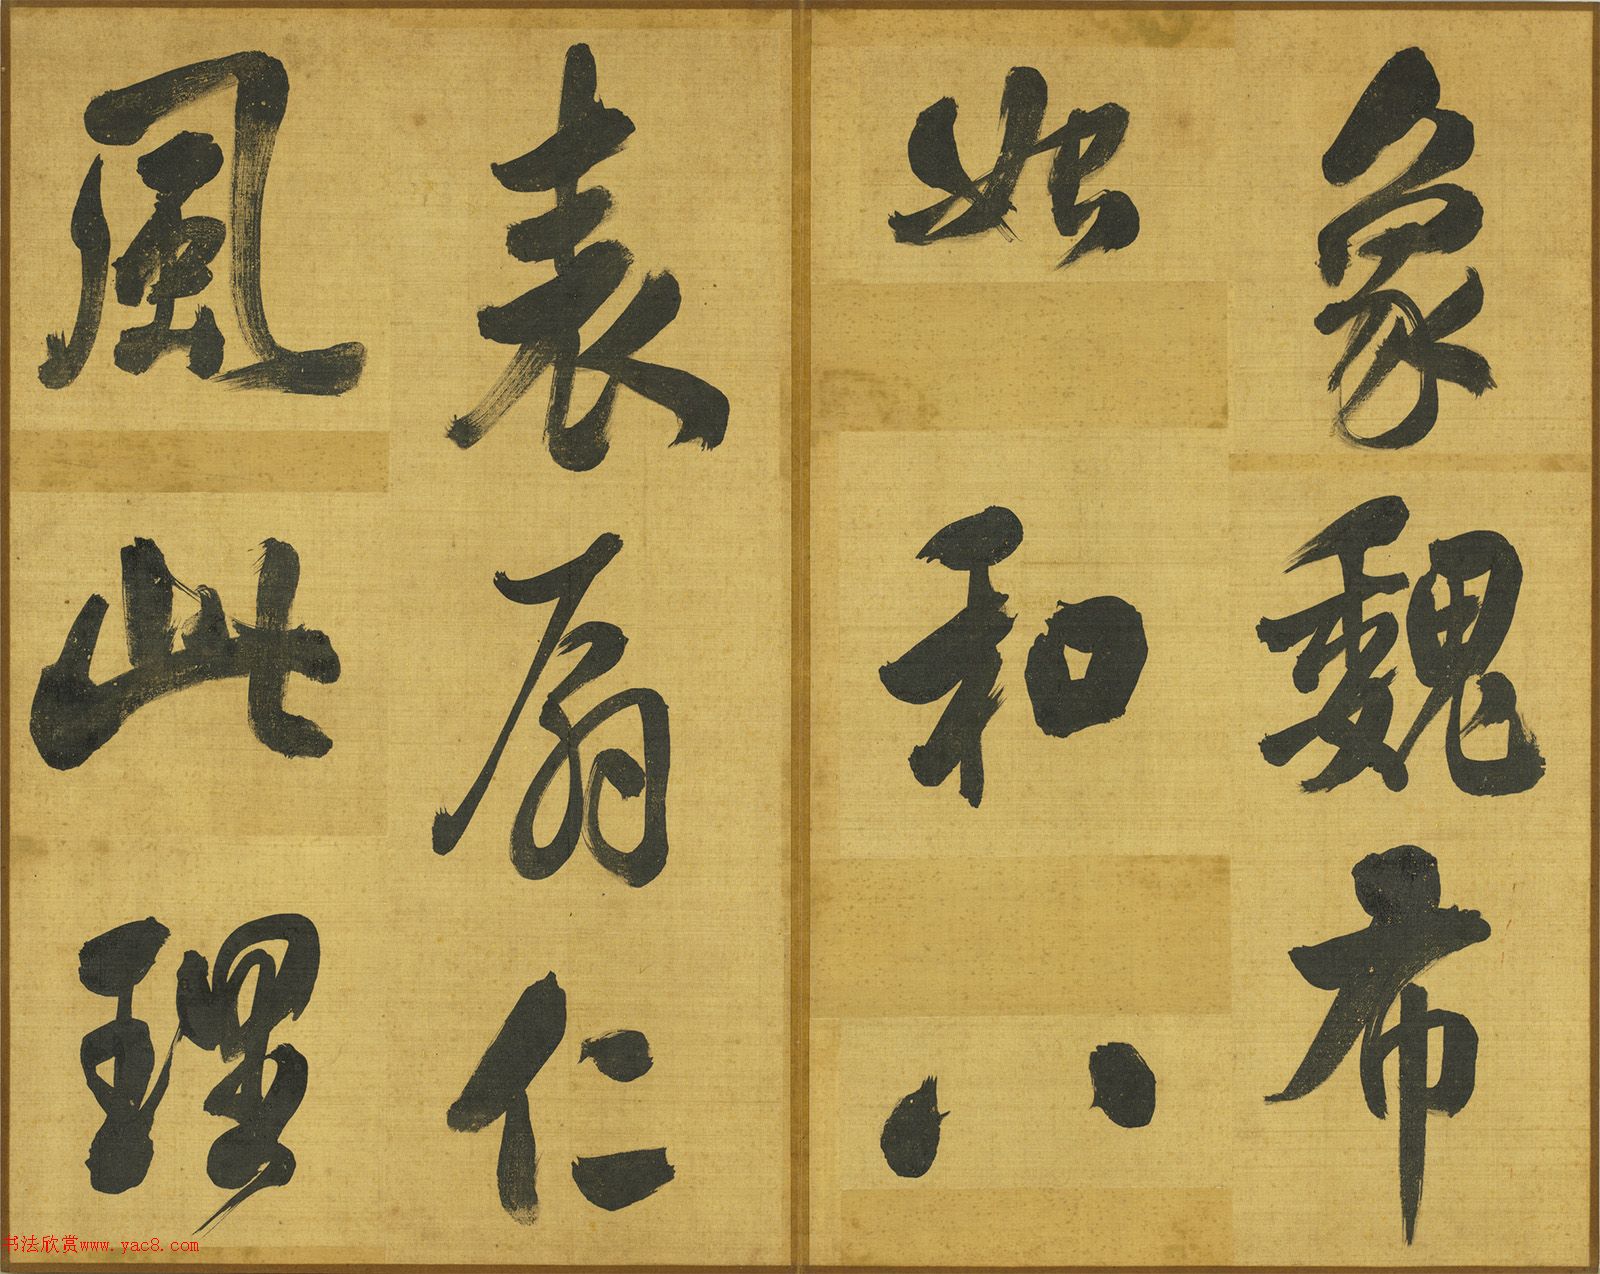 象魏布
始和八
表扇仁
風此理
书法欣赏www.yac8.com